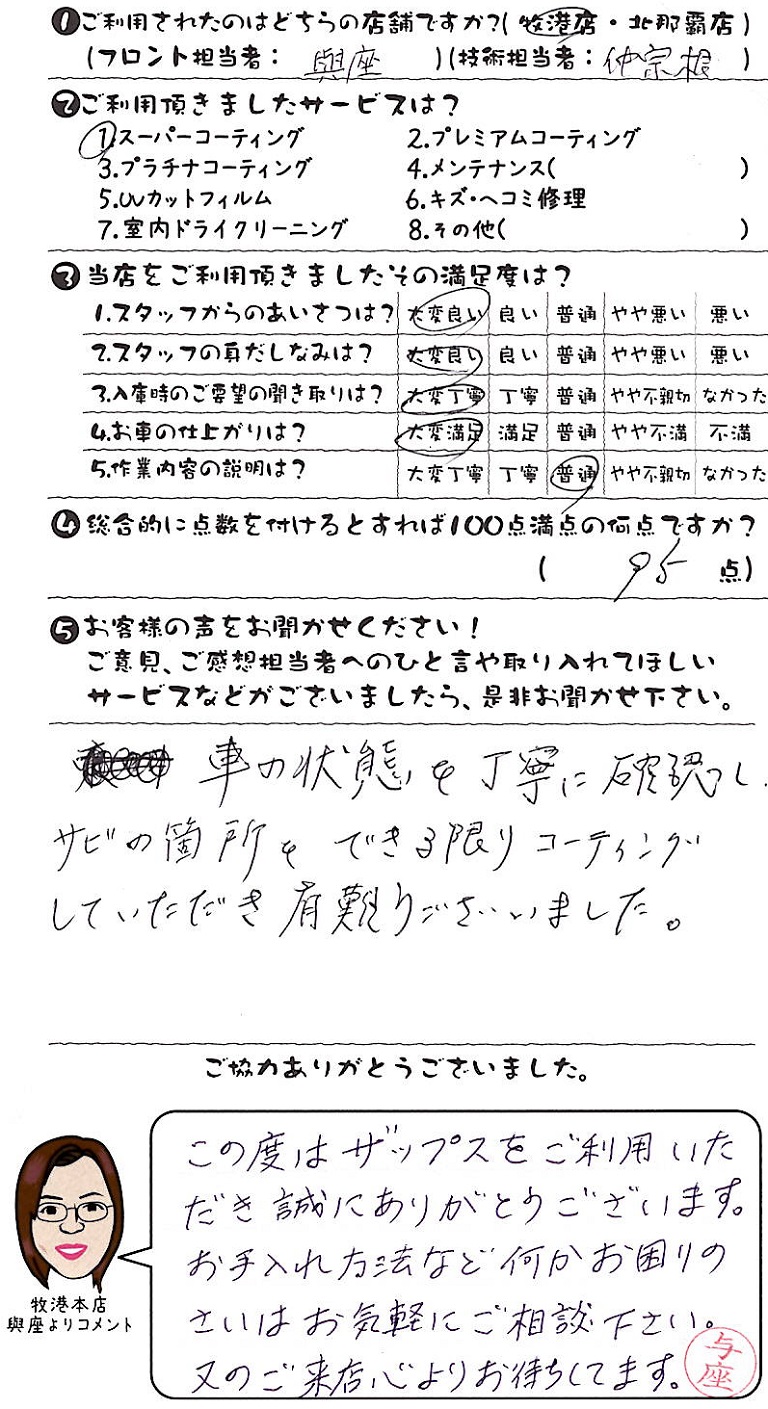 ❶ご利用されたのはどちらの店舗ですか?(牧港店・北那覇店)
(フロント担当者: 與座 )(技術担当者: 仲宗根 )
❷ご利用頂きましたサービスは?
1.スーパーコーティング 2.プレミアムコーティング
3.プラチナコーティング 4.メンテナンス( )
5.UVカットフィルム 6.キズ・ヘコミ修理
7.室内ドライクリーニング 8.その他( )
❸当店をご利用頂きましたその満足度は?
1.スタッフからのあいさつは? 大変良い 良い 普通 やや悪い 悪い
2.スタッフの身だしなみは? 大変良い 良い 普通 やや悪い 悪い
3.入庫時のご要望の聞き取りは? 大変丁寧 丁寧 普通 やや不親切 なかった
4.お車の仕上がりは? 大変満足 満足 普通 やや不満 不満
5.作業内容の説明は? 大変丁寧 丁寧 普通 やや不親切 なかった
❹総合的に点数を付けるとすれば100点満点の何点ですか?
( 95 点)
❺お客様の声をお聞かせください!
ご意見、ご感想担当者へのひと言や取り入れてほしい
サービスなどがございましたら、是非お聞かせ下さい。
車の状態を丁寧に確認し、
サビの箇所をできる限りコーティング
していただき有難うございいました。
ご協力ありがとうございました。
この度はザップスをご利用いた
だき誠にありがとうございます。
お手入れ方法など何かお困りの
さいはお気軽にご相談下さい。
又のご来店心よりお待ちしてます。
与座
牧港本店
與座よりコメント